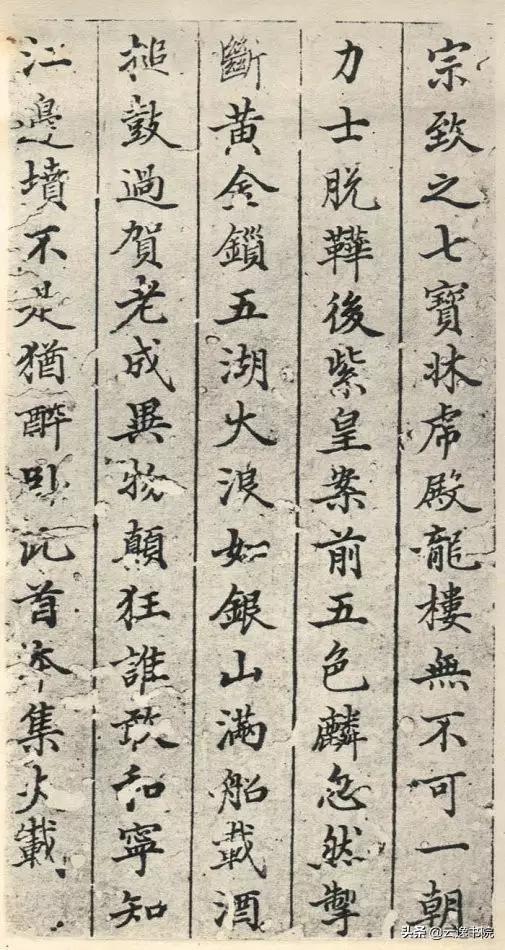 宗致之七寶牀虎殿龍樓無不可一朝
力士脱鞾後紫皇案前五色麟忽然掣
斷黄金鎖五湖大浪如銀山滿船載酒
搥鼓過賀老成異物顛狂誰敢和寧知
江邊墳不是猶醉卧此首本集失載
头条 @云逸书院